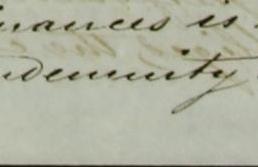 inances is
ndemnity